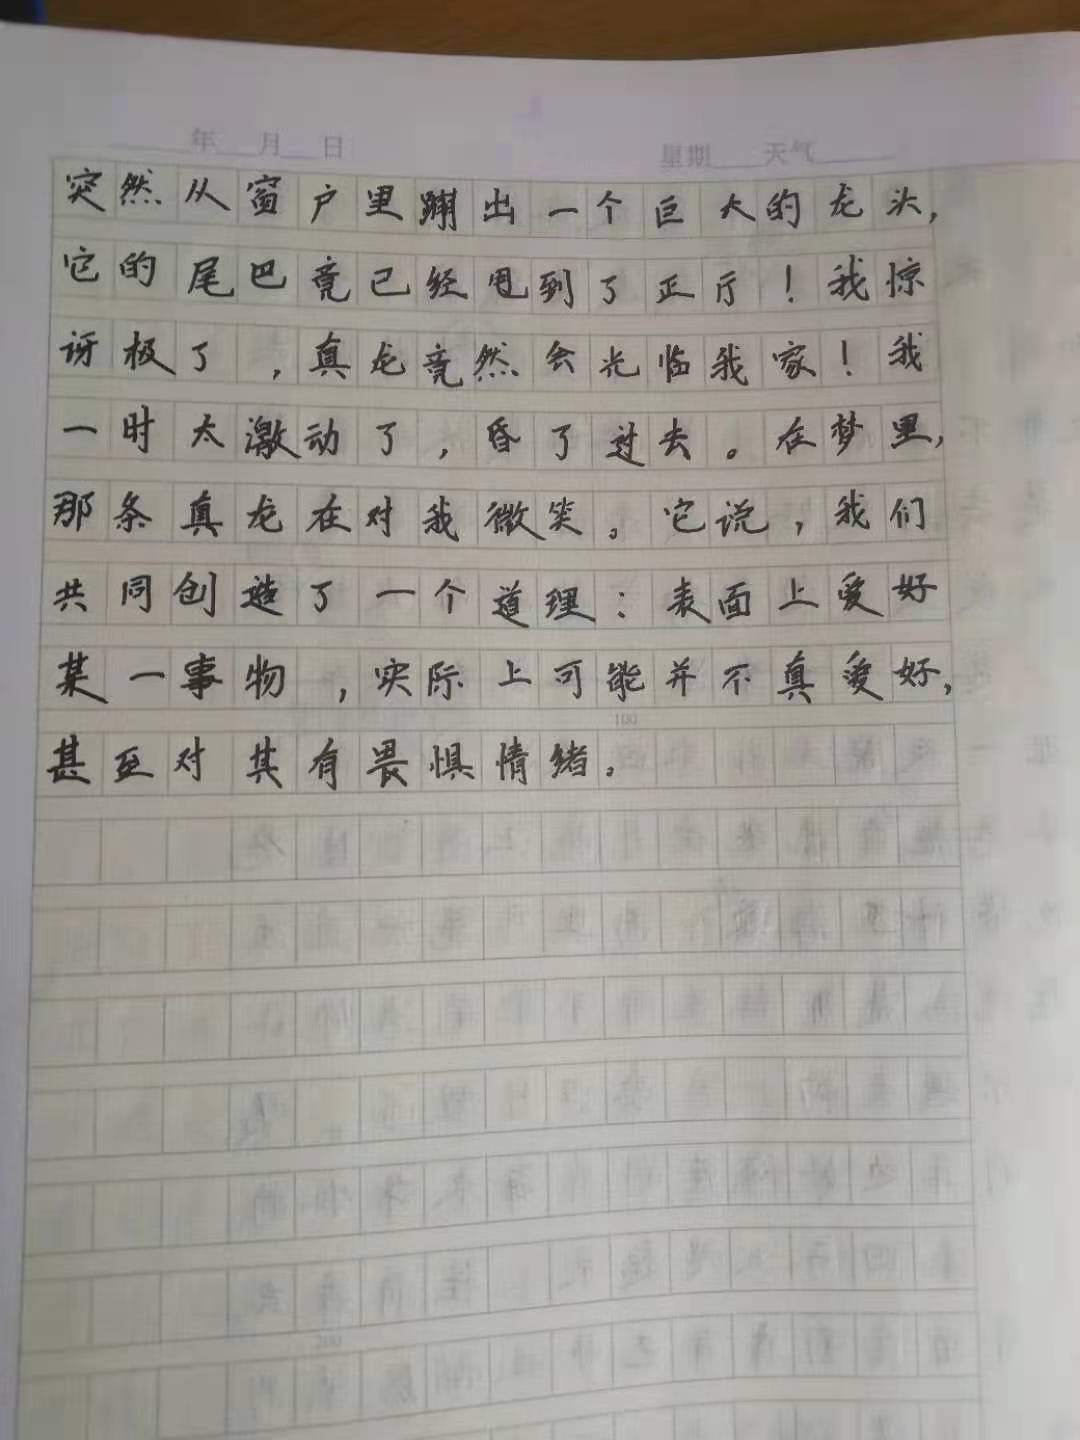 年 月 日 星期 天气
突然从窗户里蹦出一个巨大的龙头,
它的尾巴竟已经甩到了正厅!我惊
讶极了,真龙竟然会光临我家!我
一时太激动了,昏了过去。在梦里,
那条真龙在对我微笑。它说,我们
共同创造了一个道理:表面上爱好
某一事物,实际上可能并不真爱好,
100
甚至对其有畏惧情绪。
200